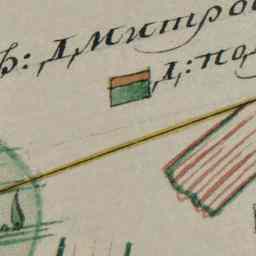 ф: Дмитро
Д: по